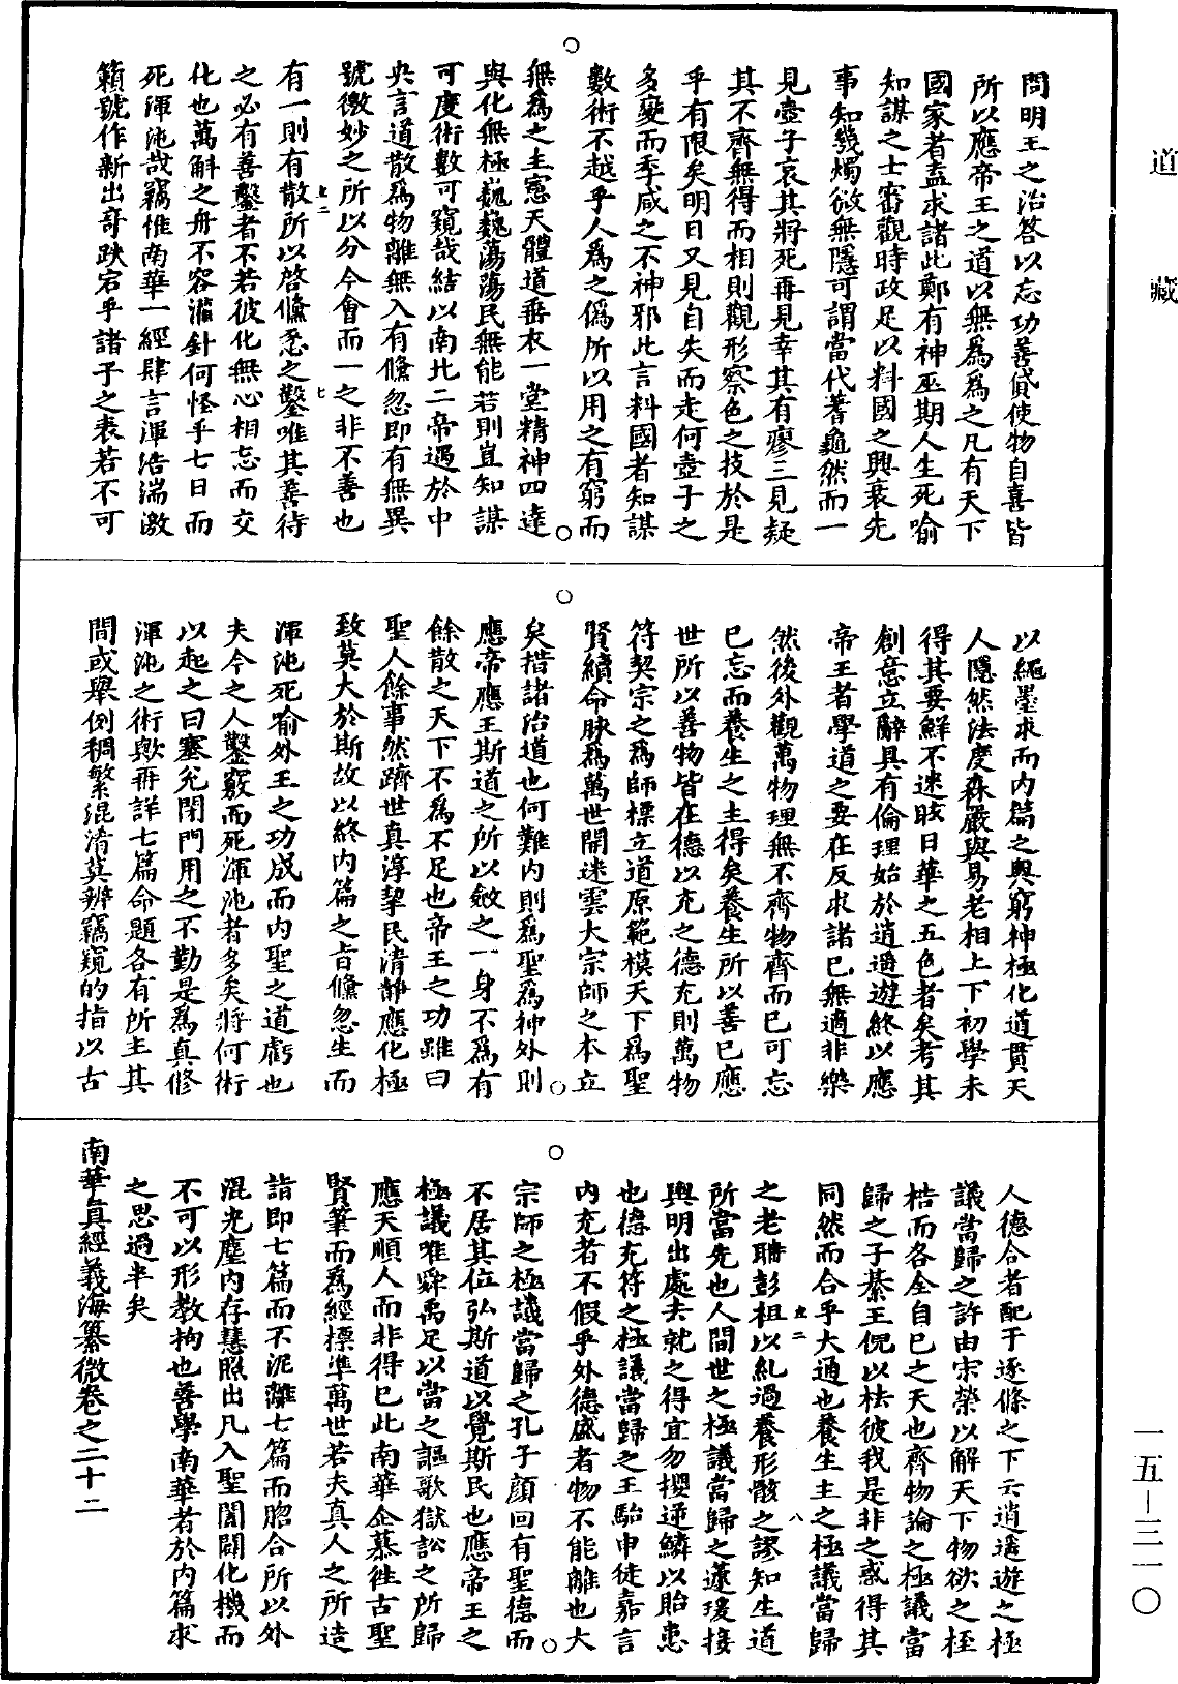 道藏
問明王之治答以忘功善貸使物自喜皆
所以應帝王之道以無為為之凡有天下
國家者盍求諸此鄭有神巫期人生死喻
知謀之士審觀時政足以料國之興衰先
事知幾燭微無隱可謂當代蓍龜然而一
見壺子哀其將死再見幸其有廖三見疑
其不齊無得而相則觀形察色之技於是
乎有限矣明日又見自失而走何壺子之
多變而季咸之不神邪此言料國者知謀
數術不越乎人為之偽所以用之有窮而
無為之主憲天體道垂衣一堂精神四達
與化無極巍巍蕩蕩民無能若則豈知謀
可度術數可窺哉結以南北二帝遇於中
央言道散為物離無入有儵忽即有無異
號徼妙之所以分今會而一之非不善也
有一則有散所以啓儵忽之鑿唯其善待
之必有善鑿者不若彼化無心相忘而交
化也萬斛之舟不容漏針何怪乎七日而
死渾沌哉竊惟南華一經肆言渾浩湍激
籟號作新出奇跌宕乎諸子之表若不可
以繩墨求而內篇之奧窮神極化道貫天
人隱然法度森嚴與易老相上下初學未
得其要鮮不迷眩日華之五色者矣考其
創意立辭具有倫理始於逍遙遊終以應
帝王者學道之要在反求諸己無適非樂
然後外觀萬物理無不齊物齊而己可忘
已忘而養生之主得矣養生所以善己應
世所以善物皆在德以充之德充則萬物
符契宗之為師標立道原範模天下為聖
賢續命脉為萬世開迷雲大宗師之本立
矣措諸治道也何難內則為聖為神外則
應帝應王斯道之所以斂之一身不為有
餘散之天下不為不足也帝王之功雖曰
聖人餘事然躋世真淳挈民清靜應化極
致莫大於斯故以終內篇之旨儵忽生而
渾沌死喻外王之功成而內聖之道虧也
夫今之人鑿竅而死渾沌者多矣將何術
以起之曰塞兌閉門用之不勤是為真修
渾沌之術歟再詳七篇命題各有所主其
間或舉倒稠繁混淆莫辨竊窺的指以古
人德合者配于逐條之下云逍遙遊之極
議當歸之許由宋榮以解天下物欲之桎
梏而各全自己之天也齊物論之極議當
歸之子綦王倪以祛彼我是非之惑得其
同然而合乎大通也養生主之極議當歸
之老聃彭祖以糺過養形骸之謬知生道
所當先也人間世之極議當歸之蘧瑗接
輿明出處去就之得宜勿攖逆鱗以貽患
也德充符之極議當歸之王駘申徒嘉言
內充者不假乎外德盛者物不能離也大
宗師之極議當歸之孔子顏回有聖德而
不居其位弘斯道以覺斯民也應帝王之
極議唯舜禹足以當之謳歌獄訟之所歸
應天順人而非得已此南華企慕徃古聖
賢筆而為經標準萬世若夫真人之所造
詣即七篇而不泥離七篇而脗合所以外
混光塵內存慧照出凡入聖闔闢化機而
不可以形教拘也善學南華者於內篇求
之思過半矣
南華真經義海纂微卷之二十二
一五—三一〇